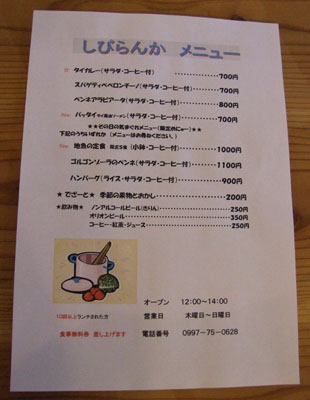 しびらんか メニュー
タイカレー(サラダ・コーヒー付) ・・・・・・・・・・・・・・・700円
スパゲティペペロンチーノ(サラダ・コーヒー付) ・・・・・・・700円
ペンネアラビアータ(サラダ・コーヒー付) ・・・・・・・・・・・800円
New パッタイ(サラダ・コーヒー付) ・・・・・・・・・700円
★★その日の気まぐれメニュー(限定めにゅー)★★
下記のうちいずれか (メニューはお尋ねください。)
New 地魚の定食 限定5食 (小鉢・コーヒー付) ・・・・・・・1000円
ゴルゴンゾーラのペンネ(サラダ・コーヒー付) ・・・・・・1100円
ハンバーグ(ライス・サラダ・コーヒー付) ・・・・・・・・・900円
★でざーと★ 季節の果物とおかし・・・・・・・・・・・・・200円
★飲み物★ ノンアルコールビール(きりん) ・・・・・・・・・・250円
オリオンビール・・・・・・・・・・・・・・・・・・・350円
コーヒー・紅茶・ジュース・・・・・・・・・・・・・250円
オープン 12:00~14:00
10回以上ランチされた方 営業日 木曜日~日曜日
食事無料券 差し上げます 電話番号 0997-75-0628